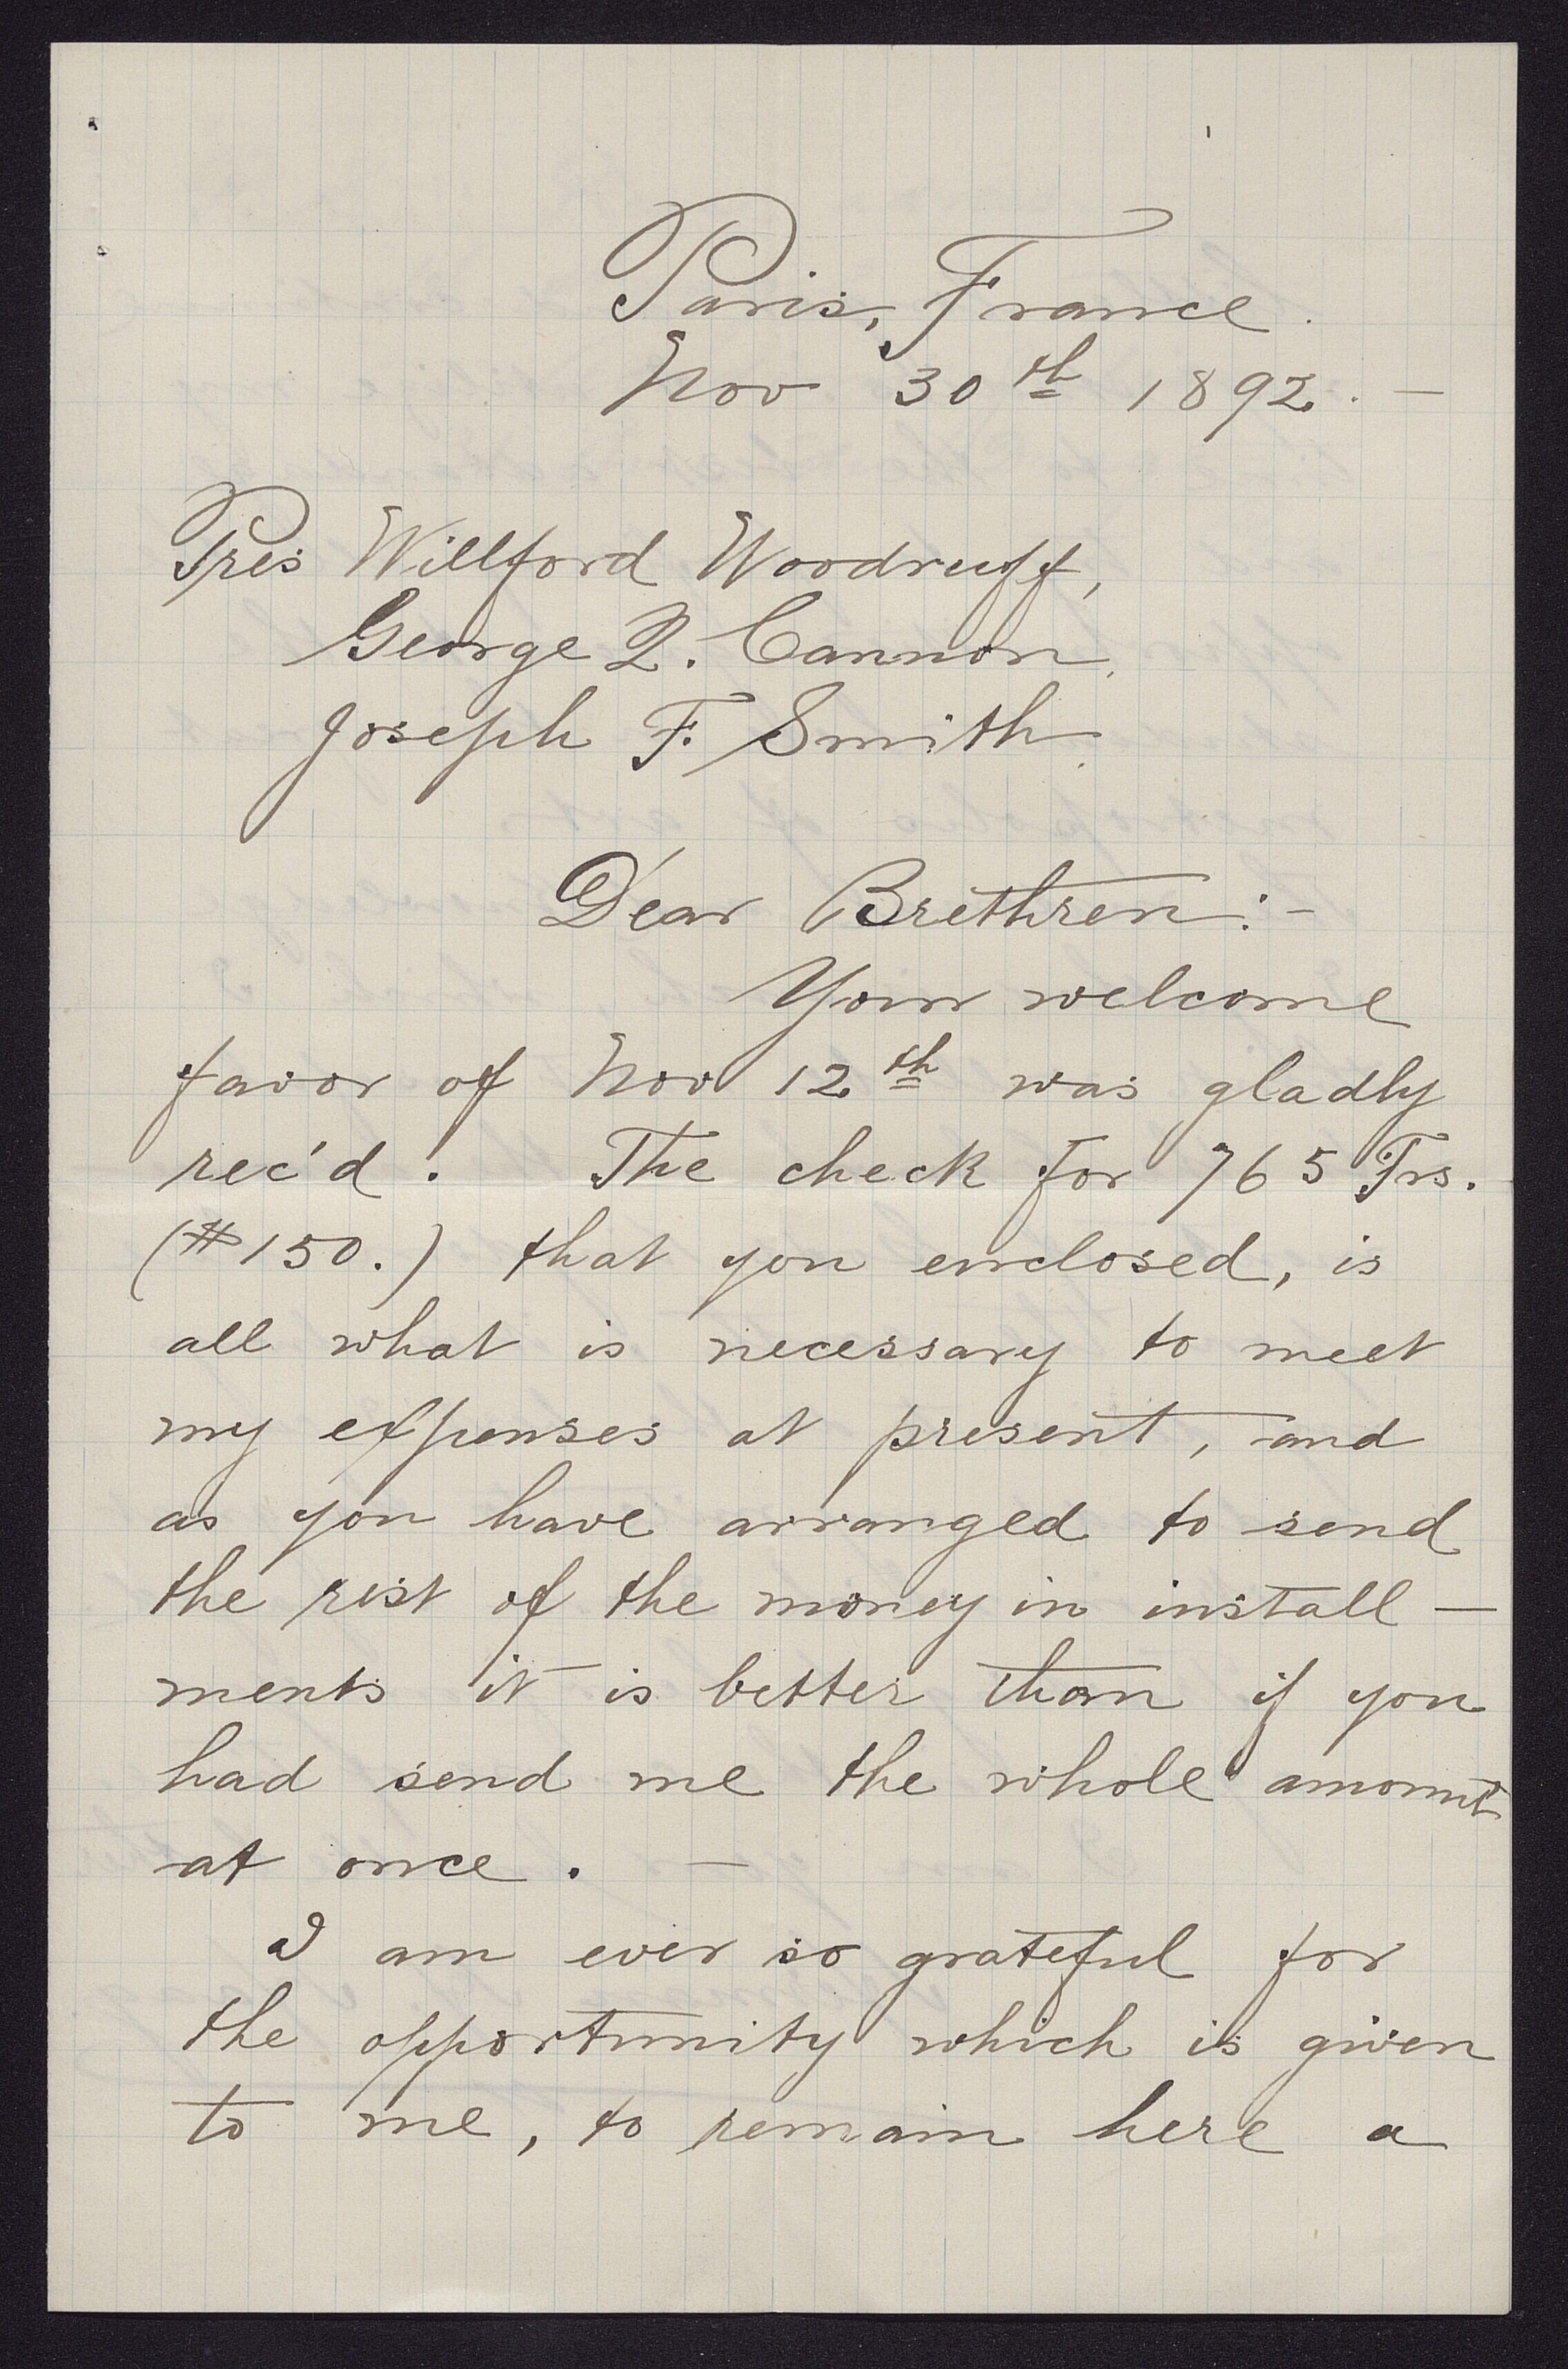 Paris, France.
Nov 30th 1892. —
Pres Willford Woodruff,
George Q. Cannon,
Joseph F. Smith.
Dear Brethren:-
Your welcome
favor of Nov 12th was gladly
rec'd. The check for 765 Frs.
(#150.) that you enclosed, is
all what is necessary to meet
my expenses at present, and
as you have arranged to send
the rest of the money in install—
ments it is better than if you
had send me the whole amount
at once. —
I am ever so grateful for
the opportunity which is given
to me, to remain here a